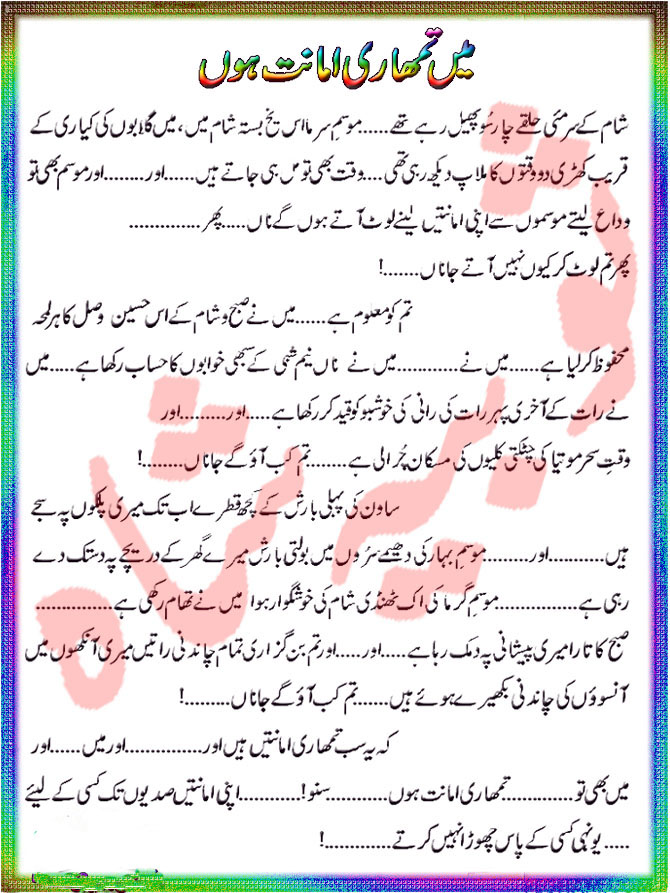 میں تمھاری امانت ہوں
شام کے سرمئی حلقے چار سُو پھیل رہے تھے.....موسمِ سرما اس یخ بستہ شام میں، میں گلابوں کی کیاری کے
قریب کھڑی دو وقتوں کا ملاپ دیکھ رہی تھی....وقت بھی تو مل ہی جاتے ہیں......اور........اور موسم بھی تو
وداع لیتے موسموں سے اپنی امانتیں لینے لوٹ آتے ہوں گے ناں.....پھر ..............
پھر تم لوٹ کر کیوں نہیں آتے جاناں.......!
تم کو معلوم ہے......میں نے صبح و شام کے اس حسین وصل کا ہر لمحہ
محفوظ کر لیا ہے......میں نے............میں نے ناں نیم شمی کے سبھی خوابوں کا حساب رکھا ہے.....میں
نے رات کے آخری پہر رات کی رانی کی خوشبو کو قید کر رکھا ہے.....اور.........اور
وقتِ سحر موتیا کی چٹکتی کلیوں کی مسکان چُرا لی ہے........تم کب آؤ گے جاناں........!
ساون کی پہلی بارش کے کچھ قطرے اب تک میری پلکوں پہ سجے
ہیں...........اور.........موسمِ بہار کی دھیمے سرُوں میں بولتی بارش میرے گھر کے دریچے پہ دستک دے
رہی ہے...............موسمِ گرما کی اک ٹھنڈی شام کی خوشگوار ہوا میں نے تھام رکھی ہے..............
صبح کا تارا میری پیشانی پہ دمک رہا ہے.....اور.....اور تم بن گزاری تمام چاندنی راتیں میری آنکھوں میں
آنسوؤں کی چاندنی بکھیرے ہوئے ہیں.......تم کب آؤ گے جاناں.........!
کہ یہ سب تمھاری امانتیں ہیں اور...............اور میں......اور
میں بھی تو.............تمھاری امانت ہوں............سنو!............اپنی امانتیں صدیوں تک کسی کے لیئے
.....یونہی کسی کے پاس چھوڑا نہیں کرتے.............!